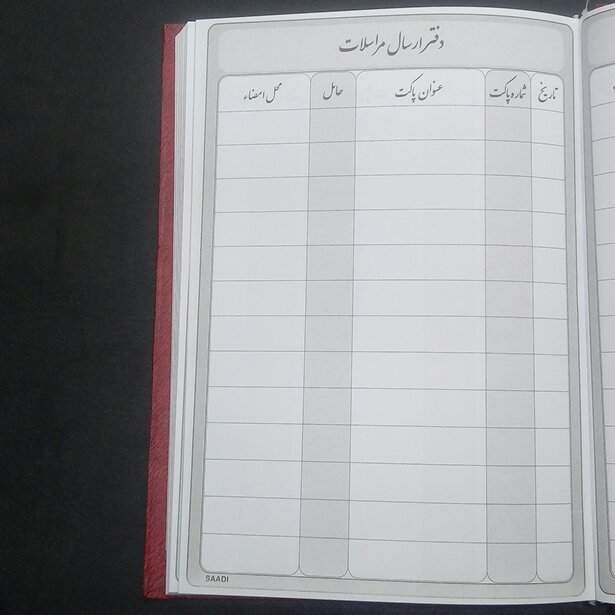 دفتر ارسال مراسلات
تاریخ شماره پاکت عنوان پاکت حامل محل امضاء
SAADI